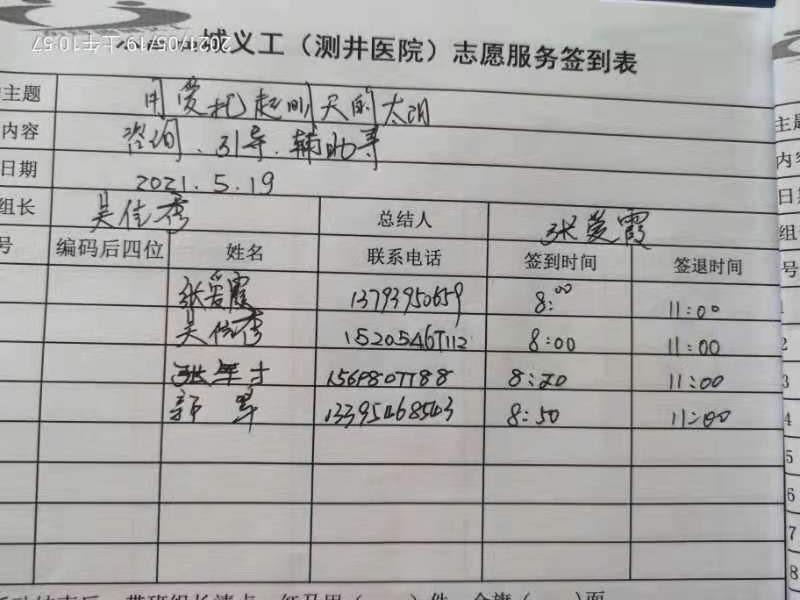 2021/05/19 上午10:57
城义工（测井医院）志愿服务签到表
主题 用爱托起明天的太阳
内容 咨询、引导、辅助等
日期 2021.5.19
组长 吴佳秀 总结人 张爱霞
号 编码后四位 姓名 联系电话 签到时间 签退时间
张爱霞 13793950659 8:00 11:00
吴佳秀 15205467112 8:00 11:00
8:20 11:00
13395468543 8:50 11:00
主题
内容
日
组
号
1
2
3
4
5
6
7
8